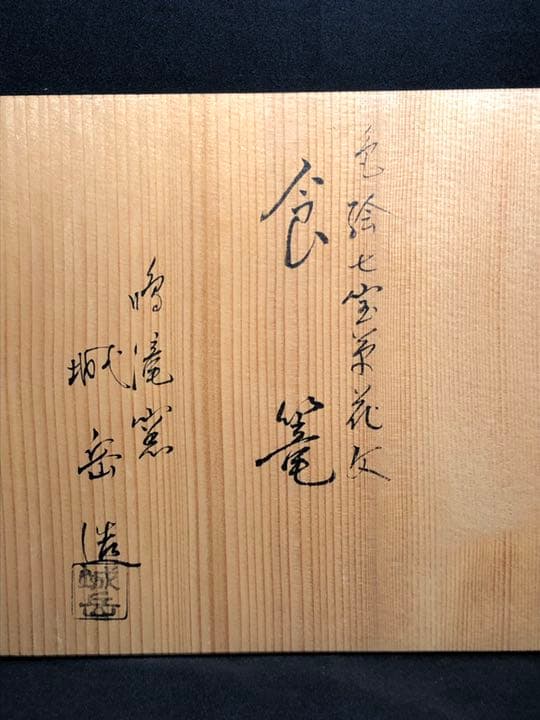 色絵七宝草花文
食篭
鳴滝窯
城岳造
城岳